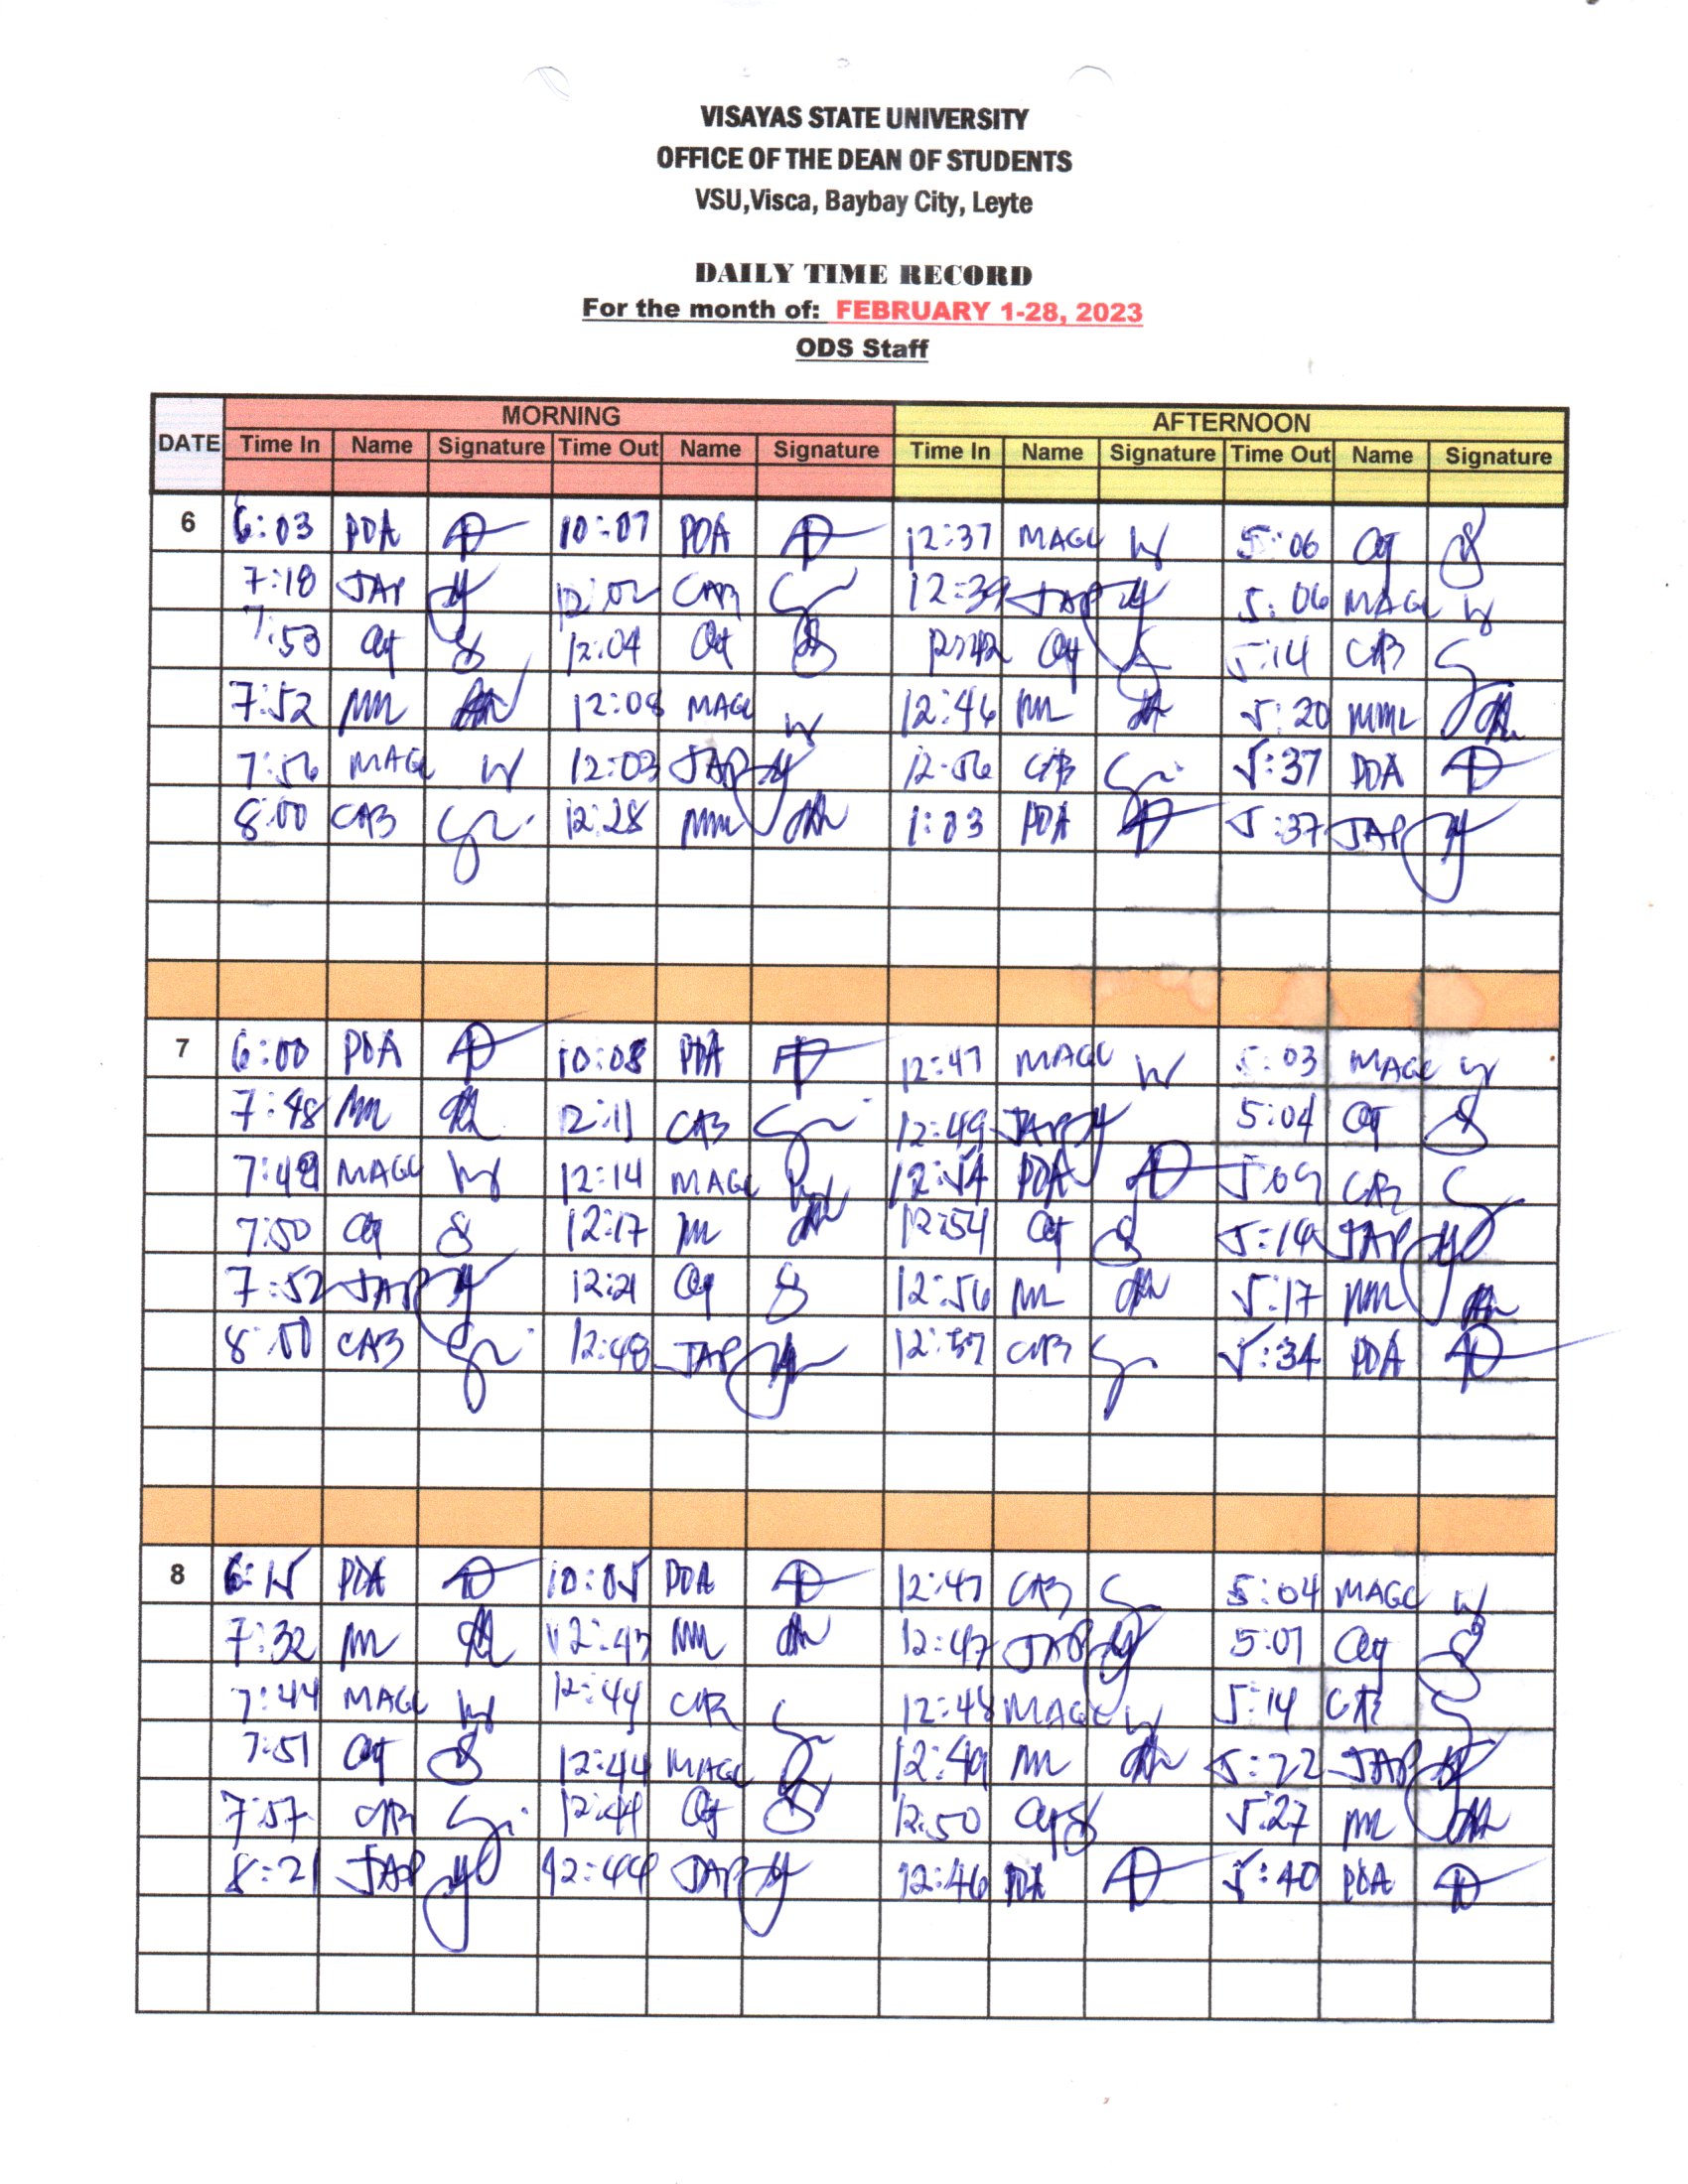 VISAYAS STATE UNIVERSITY
OFFICE OF THE DEAN OF STUDENTS
VSU,Visca, Baybay City, Leyte
DAILY TIME RECORD
For the month of: FEBRUARY 1-28, 2023
ODS Staff
MORNING AFTERNOON
DATE Time In Name Signature Time Out Name Signature Time In Name Signature Time Out Name Signature
6 6:03 PDA 10:07 PDA 12:37 MAGL 5:06
7:18 JAP 12:02 CAB 12:39 JAP 5:06 MAGL
7:53 12:04 12:42 5:14 CAB
7:52 MM 12:08 MAGL 12:46 MM 5:20 MML
7:56 MAGL 12:03 JAP 12:56 CAB 5:37 PDA
8:00 CAB 12:28 MM 1:03 PDA 5:37 JAP
7 6:00 PDA 10:08 PDA 12:47 MAGL 5:03 MAGL
7:48 MM 12:11 CAB 12:49 JAP 5:04
7:49 MAGL 12:14 MAGL 12:54 PDA 5:09 CAB
7:50 12:17 MM 12:54 5:14 JAP
7:52 JAP 12:21 12:56 MM 5:17 MM
8:00 CAB 12:48 JAP 12:57 CAB 5:34 PDA
8 6:15 PDA 10:05 PDA 12:47 CAB 5:04 MAGL
7:32 MM 12:43 MM 12:47 JAP 5:07
7:44 MAGL 12:44 CAB 12:48 MAGL 5:14 CAB
7:51 12:44 MAGL 12:49 MM 5:22 JAP
7:57 CAB 12:44 12:50 5:27 MM
8:21 JAP 12:44 JAP 12:46 PDA 5:40 PDA